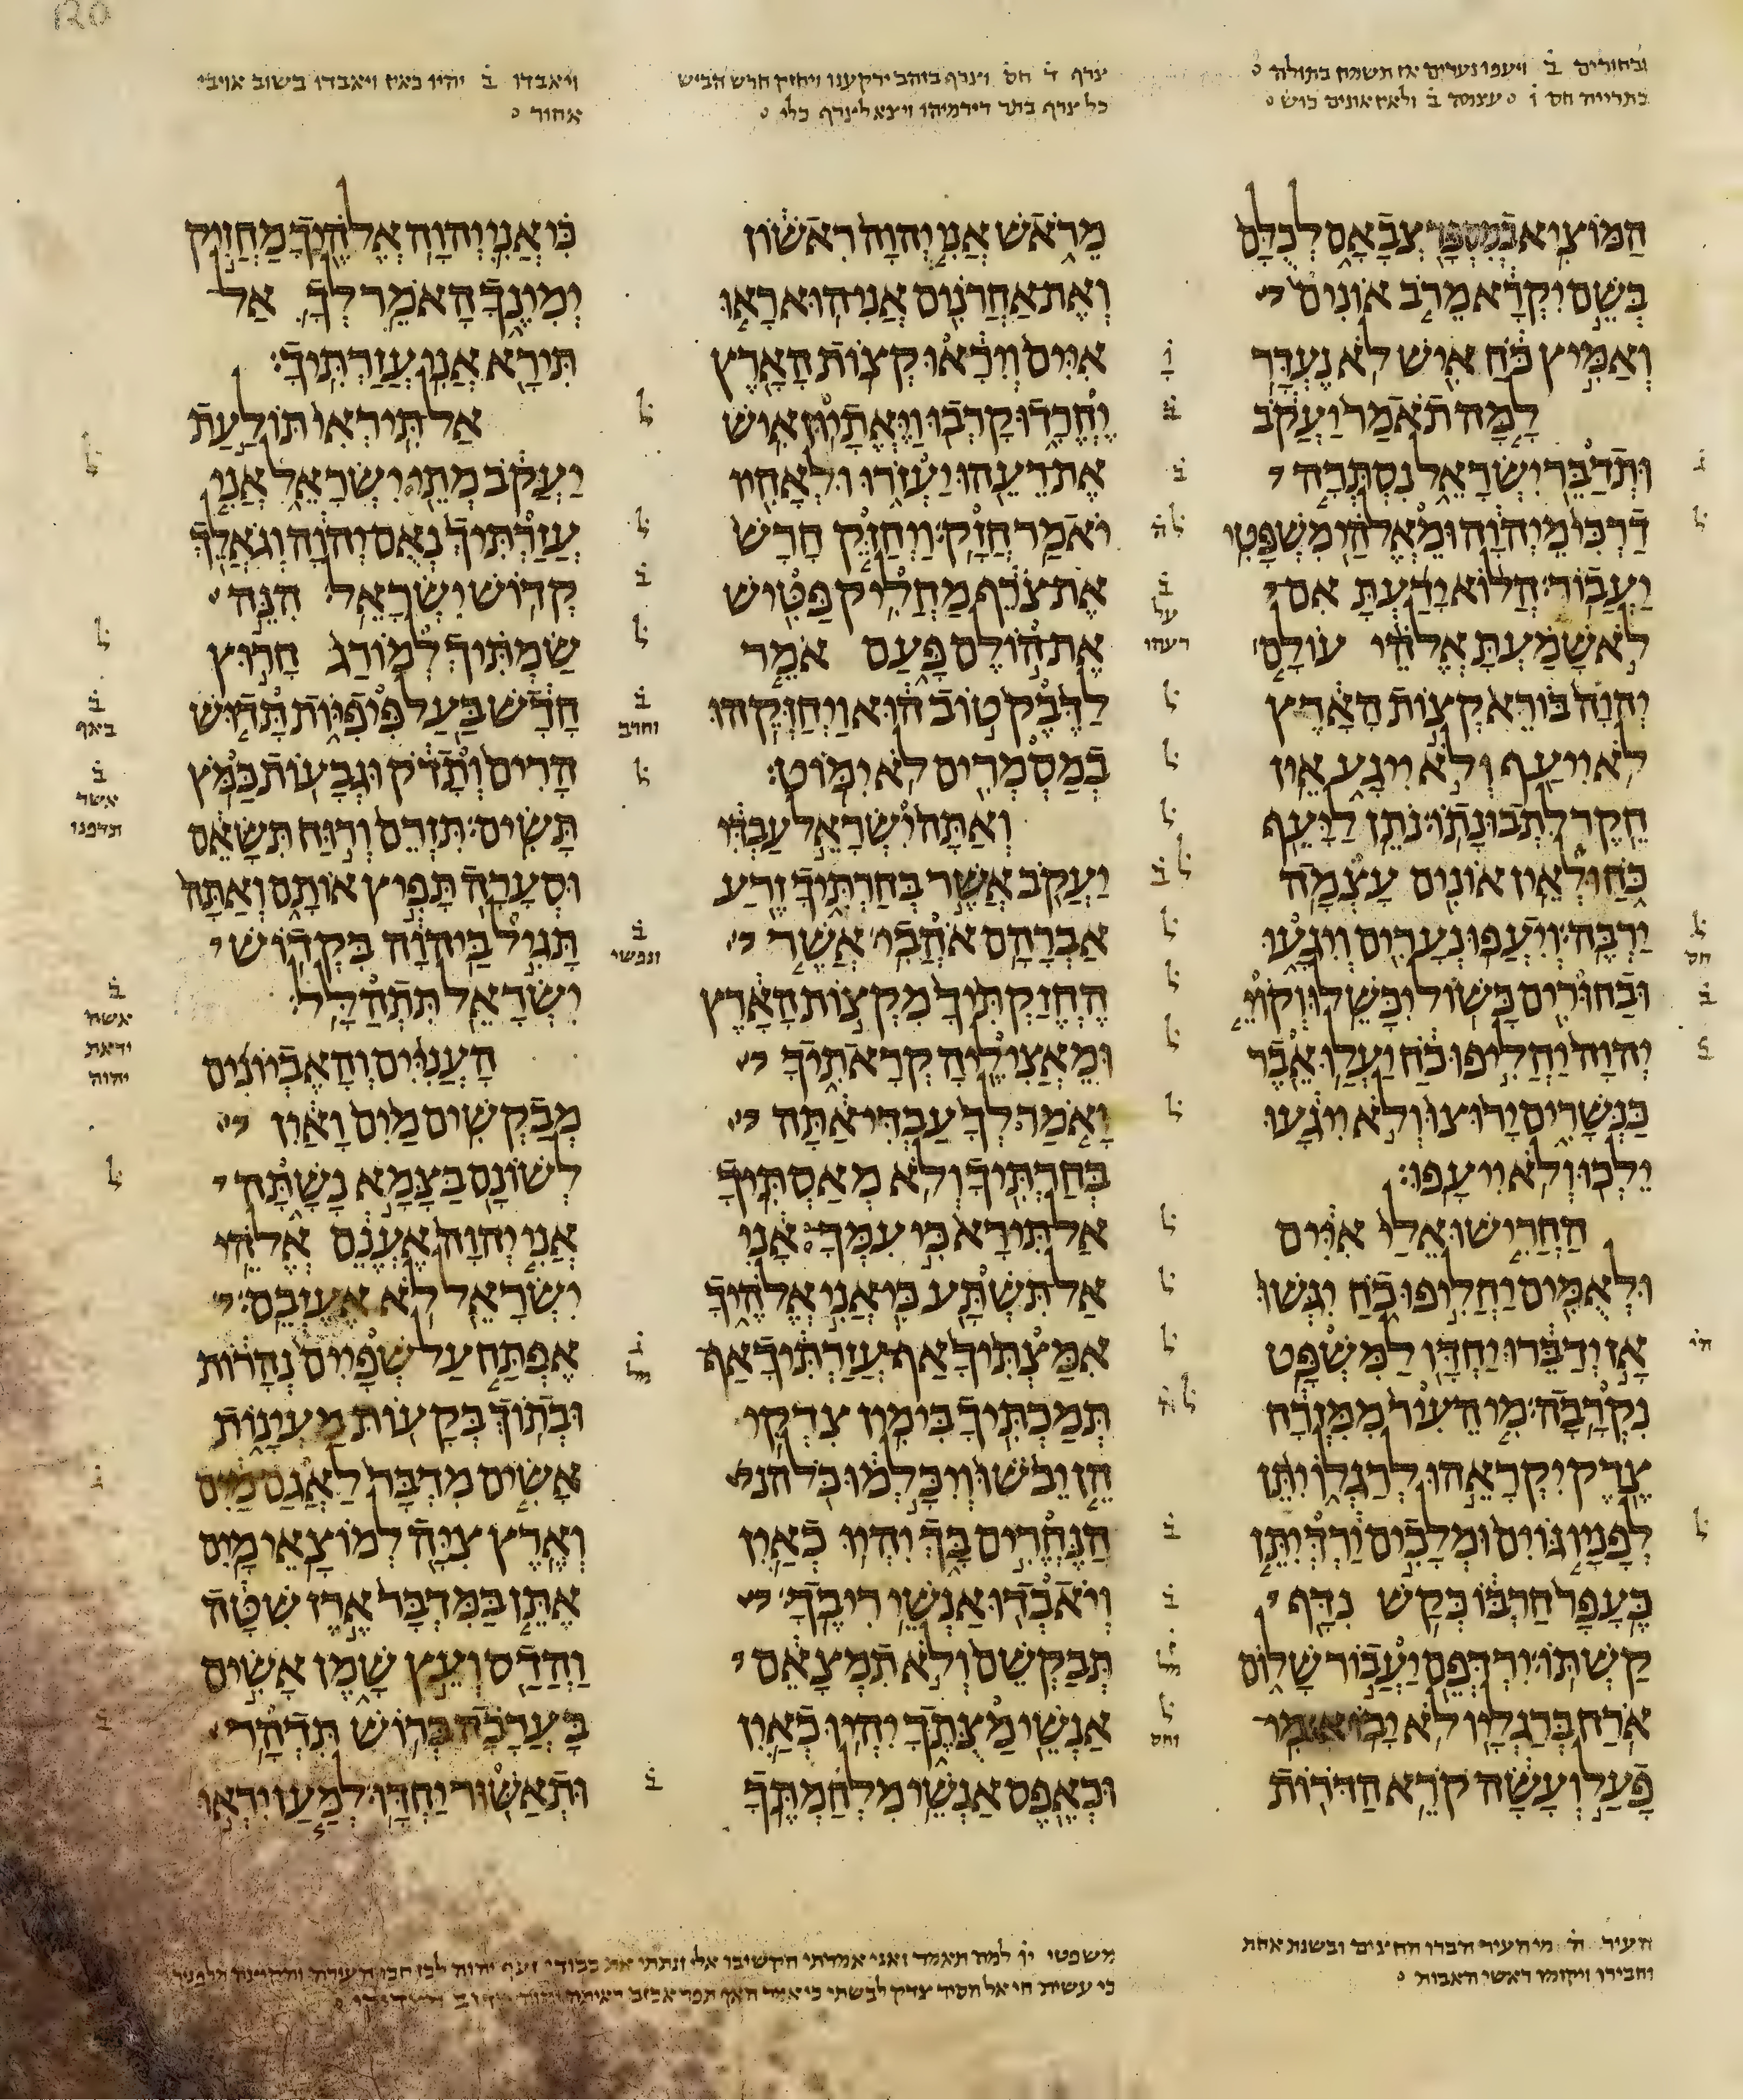 ובחורים ב̇ ויעפו נערים אז תשמח בתולה
בתרייה חס ו̇ עצמה ב̇ ולאין אונים כוש
צרף ד̇ חס̇ וצרף בזהב ירקענו ויחזק חרש הביש
כל צרף בתר דירמיהו ויצא לצרף כלי
ויאבדו ב̇ יהיו כאין ויאבדו בשוב אויבי
אחור
הַמּוֹצִיא בְמִסְפָּר צְבָאָם לְכֻלָּם
בְּשֵׁם יִקְרָא מֵרֹב אוֹנִים
וְאַמִּיץ כֹּחַ אִישׁ לֹא נֶעְדָּר
לָמָּה תֹאמַר יַעֲקֹב
וּתְדַבֵּר יִשְׂרָאֵל נִסְתְּרָה
דַרְכִּי מֵיְהוָה וּמֵאֱלֹהַי מִשְׁפָּטִי
יַעֲבוֹר׃ הֲלוֹא יָדַעְתָּ אִם
לֹא שָׁמַעְתָּ אֱלֹהֵי עוֹלָם
יְהוָה בּוֹרֵא קְצוֹת הָאָרֶץ
לֹא יִיעַף וְלֹא יִיגָע אֵין
חֵקֶר לִתְבוּנָתוֹ׃ נֹתֵן לַיָּעֵף
כֹּחַ וּלְאֵין אוֹנִים עָצְמָה
יַרְבֶּה׃ וְיִעֲפוּ נְעָרִים וְיִגָעוּ
וּבַחוּרִים כָּשׁוֹל יִכָּשֵׁלוּ׃ וְקֹוֵי
יְהוָה יַחֲלִיפוּ כֹחַ יַעֲלוּ אֵבֶר
כַּנְּשָׁרִים יָרוּצוּ וְלֹא יִיגָעוּ
יֵלְכוּ וְלֹא יִיעָפוּ׃
הַחֲרִישׁוּ אֵלַי אִיִּים
וּלְאֻמִּים יַחֲלִיפוּ כֹחַ יִגְּשׁוּ
אָז יְדַבֵּרוּ יַחְדָּו לַמִּשְׁפָּט
נִקְרָבָה׃ מִי הֵעִיר מִמִּזְרָח
צֶדֶק יִקְרָאֵהוּ לְרַגְלוֹ יִתֵּן
לְפָנָיו גּוֹיִם וּמְלָכִים יַרְדְּ יִתֵּן
כֶּעָפָר חַרְבּוֹ כְּקַשׁ נִדָּף
קַשְׁתּוֹ׃ יִרְדְּפֵם יַעֲבוֹר שָׁלוֹם
אֹרַח בְּרַגְלָיו לֹא יָבוֹא׃ מִי
פָעַל וְעָשָׂה קֹרֵא הַדֹּרוֹת
מֵרֹאשׁ אֲנִי יְהוָה רִאשׁוֹן
וְאֶת אַחֲרֹנִים אֲנִי הוּא׃ רָאוּ
אִיִּים וְיִרָאוּ קְצוֹת הָאָרֶץ
יֶחֱרָדוּ קָרְבוּ וַיֶּאֱתָיוּן׃ אִישׁ
אֶת רֵעֵהוּ יַעְזֹרוּ וּלְאָחִיו
יֹאמַר חֲזָק׃ וַיְחַזֵּק חָרָשׁ
אֶת צֹרֵף מַחֲלִיק פַּטִּישׁ
אֶת הוֹלֶם פָּעַם אֹמֵר
לַדֶּבֶק טוֹב הוּא וַיְחַזְּקֵהוּ
בְמַסְמְרִים לֹא יִמּוֹט׃
וְאַתָּה יִשְׂרָאֵל עַבְדִּי
יַעֲקֹב אֲשֶׁר בְּחַרְתִּיךָ זֶרַע
אַבְרָהָם אֹהֲבִי׃ אֲשֶׁר
הֶחֱזַקְתִּיךָ מִקְצוֹת הָאָרֶץ
וּמֵאֲצִילֶיהָ קְרָאתִיךָ
וָאֹמַר לְךָ עַבְדִּי אַתָּה
בְּחַרְתִּיךָ וְלֹא מְאַסְתִּיךָ׃
אַל תִּירָא כִּי עִמְּךָ אָנִי
אַל תִּשְׁתָּע כִּי אֲנִי אֱלֹהֶיךָ
אִמַּצְתִּיךָ אַף עֲזַרְתִּיךָ אַף
תְּמַכְתִּיךָ בִּימִין צִדְקִי׃
הֵן יֵבֹשׁוּ וְיִכָּלְמוּ כֹּל הַנ
הַנֶּחֱרִים בָּךְ יִהְיוּ כְאַיִן
וְיֹאבְדוּ אַנְשֵׁי רִיבֶךָ׃
תְּבַקְשֵׁם וְלֹא תִמְצָאֵם
אַנְשֵׁי מַצֻּתֶךָ יִהְיוּ כְאַיִן
וּכְאֶפֶס אַנְשֵׁי מִלְחַמְתֶּךָ׃
כִּי אֲנִי יְהוָה אֱלֹהֶיךָ מַחֲזִיק
יְמִינֶךָ הָאֹמֵר לְךָ אַל
תִּירָא אֲנִי עֲזַרְתִּיךָ׃
אַל תִּירְאִי תּוֹלַעַת
יַעֲקֹב מְתֵי יִשְׂרָאֵל אֲנִי
עֲזַרְתִּיךְ נְאֻם יְהוָה וְגֹאֲלֵךְ
קְדוֹשׁ יִשְׂרָאֵל׃ הִנֵּה
שַׂמְתִּיךְ לְמוֹרַג חָרוּץ
חָדָשׁ בַּעַל פִּיפִיּוֹת תָּדוּשׁ
הָרִים וְתָדֹק וּגְבָעוֹת כַּמֹּץ
תָּשִׂים׃ תִּזְרֵם וְרוּחַ תִּשָּׂאֵם
וּסְעָרָה תָּפִיץ אוֹתָם וְאַתָּה
תָּגִיל בַּיהוָה בִּקְדוֹשׁ
יִשְׂרָאֵל תִּתְהַלָּל׃
הָעֲנִיִּים וְהָאֶבְיוֹנִים
מְבַקְשִׁים מַיִם וָאַיִן
לְשׁוֹנָם בַּצָּמָא נָשָׁתָּה
אֲנִי יְהוָה אֶעֱנֵם אֱלֹהֵי
יִשְׂרָאֵל לֹא אֶעֶזְבֵם׃
אֶפְתַּח עַל שְׁפָיִים נְהָרוֹת
וּבְתוֹךְ בְּקָעוֹת מַעְיָנוֹת
אָשִׂים מִדְבָּר לַאֲגַם מַיִם
וְאֶרֶץ צִיָּה לְמוֹצָאֵי מָיִם׃
אֶתֵּן בַּמִּדְבָּר אֶרֶז שִׁטָּה
וַהֲדַס וְעֵץ שָׁמֶן אָשִׂים
בָּעֲרָבָה בְּרוֹשׁ תִּדְהָר
וּתְאַשּׁוּר יַחְדָּו׃ לְמַעַן יִרְאוּ
העיר ה̇ מי העיר הברו החצים ובשנת אחת
וחבירו ויקומו ראשי האבות
משפטי יו̇ למה תאמר ואני אמרתי הקשיבו אלי ונתתי את כבודי זעף יהוה
כי עשית חי אל הסיר צדק לבשתי כי אמר האף תפר אכזב